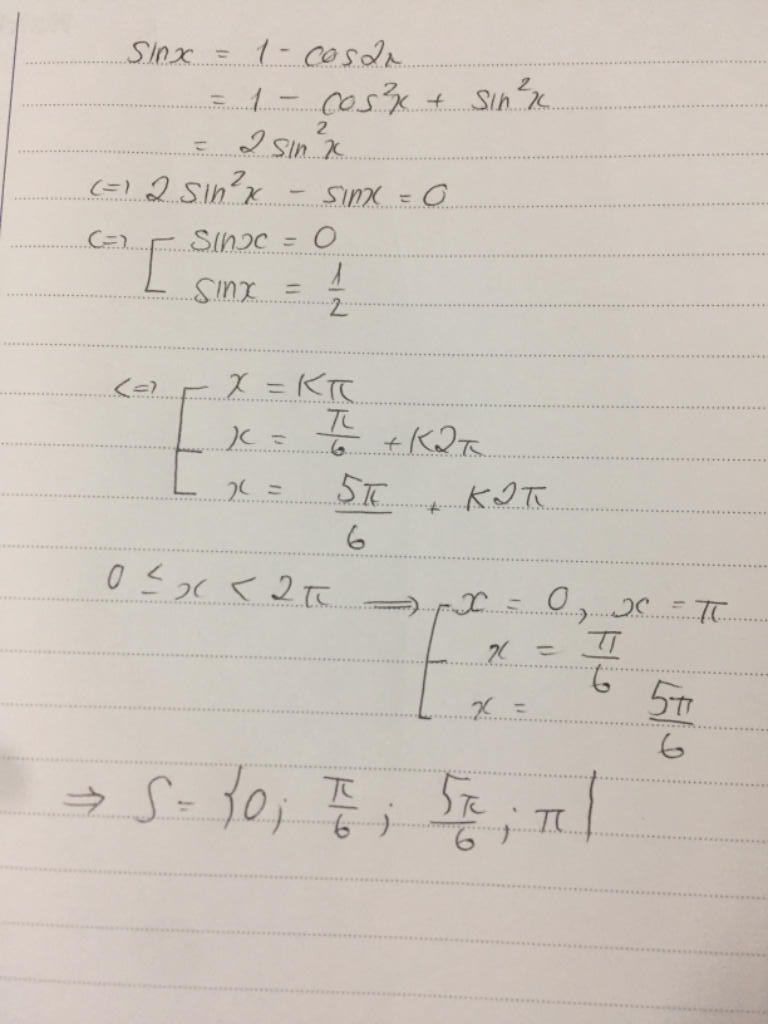 sinx = 1 - cos2x
= 1 - cos²x + sin²x
= 2 sin²x
<=> 2 sin²x - sinx = 0
<=> [ sinx = 0
sinx = 1/2
<=> [ x = Kπ
x = π/6 + K2π
x = 5π/6 + K2π
0 ≤ x < 2π ⟹ [ x = 0, x = π
x = π/6
x = 5π/6
⇒ S = {0; π/6; 5π/6; π}